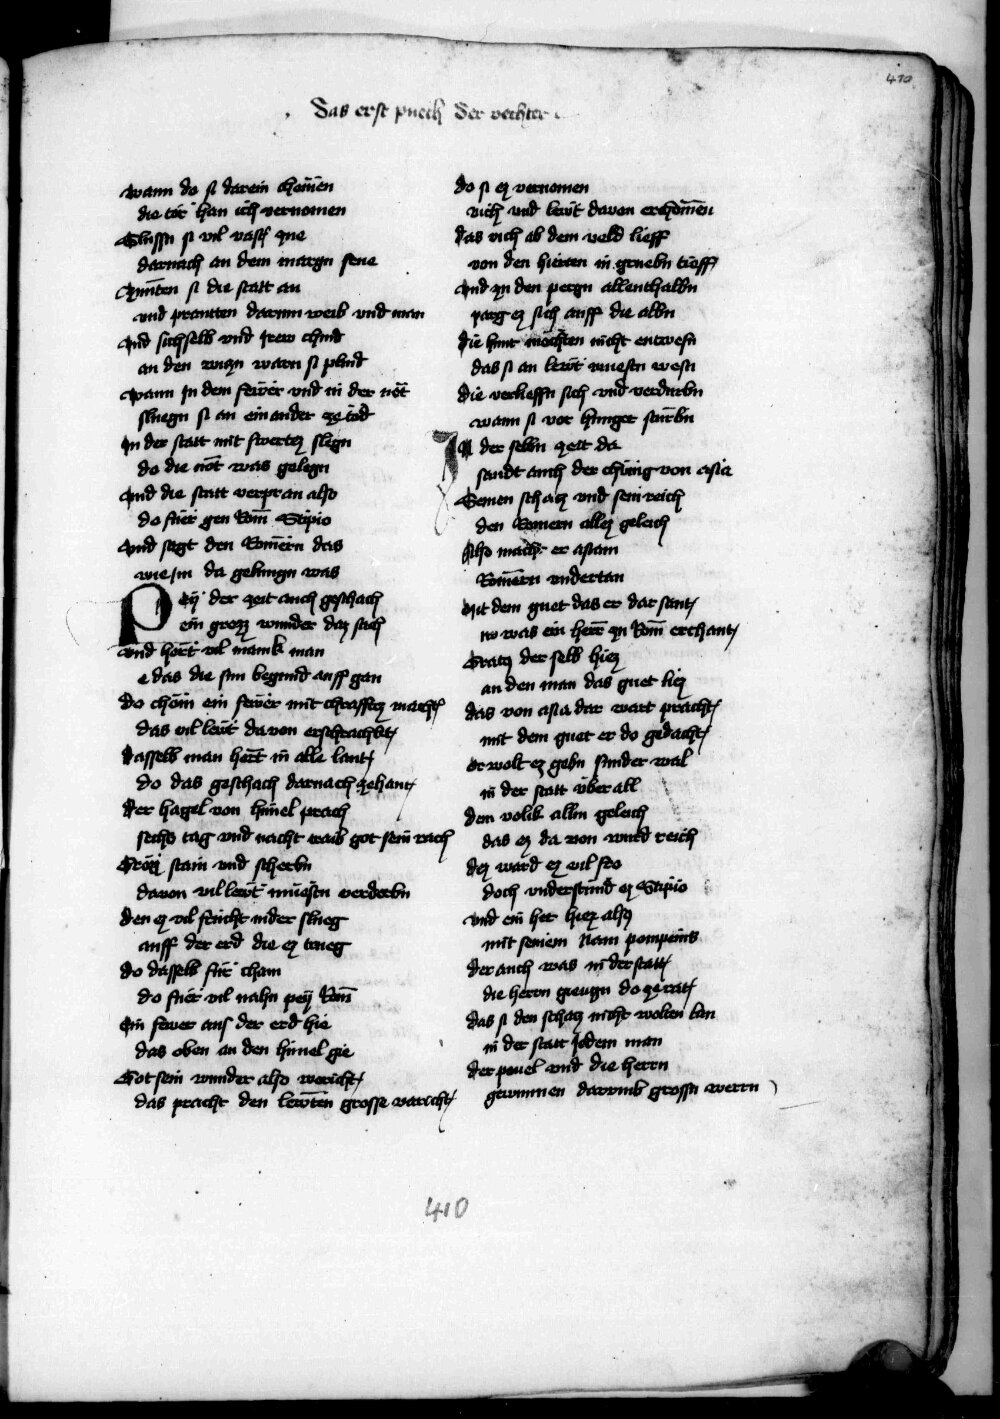 410
Das erst puech der vechter
wann do si darein chomen
die tor han ich vernomen
Slussn si vil vast zue
darnach an dem margn frue
Zunten si die statt an
vnd prantten darinn weib vnd man
Vnd sichselb vnd irew chind
an den wiczn warn si plind
wann in dem fewer vnd in der not
sluegn si an einander ze tod
In der statt mit swertez slegn
do die not was gelegn
Vnd die statt verpran also
do fuer gen Rom Scipio
Vnd sagt den Romern das
wie im da gelungn was
Pey der zeit auch geschach
ein grozz wunder daz sach
Vnd hort vil manik man
e das die sun begund auff gan
do chom ein fewer mit chrafftez macht
das vil lewt davon erschrachkt
dasselb man hort in alle lant
do das geschach darnach zehant
der hagel von himel prach
sechs tag vnd nacht traib got sein rach
Groz stain vnd scherbn
davon vil lewt muestn verderbn
den ez vil frucht nider slueg
auff der erd die ez trueg
do dasselb fur cham
do fuer vil nahn pey Rom
Ein fewer aus der erd hie
das oben an den himel gie
Got sein wunder also woricht
das pracht den lewten grosse voricht
do si ez vernomen
vich vnd lewt davon erchomen
das vich ab dem veld lieff
von den hierten in gruebn tieff
Vnd zu den pergn allenthalbn
parg ez sich auff die albn
die hunt mochten nicht entwesn
das si an lewt muestn wesn
die verlieffn sich vnd verdurbn
wann si vor hunger sturbn
In der selbn zeit da
sandt auch der chunig von asia
Seinen schacz vnd sein reich
den Romern allez geleich
Also macht er asiam
Romern vndertan
Mit dem guet das er dar sant
nv was ein herr zu Rom erchant
Gracz der selb hiez
an den man das guet liez
das von asia dar wart pracht
mit dem guet er do gedacht
er wolt ez gebn sunder wal
in der statt vber all
dem volik allm geleich
das ez da von wurd reich
dez ward ez vil fro
doch vnderstund ez Scipio
vnd ein her hiez also
mit seinem nam pompeius
der auch was in der statt
die herrn giengn do ze rat
das si den schacz nicht wolten lan
in der statt jedem man
der povel vnd die herrn
gewunnen darumb grossn werrn
410